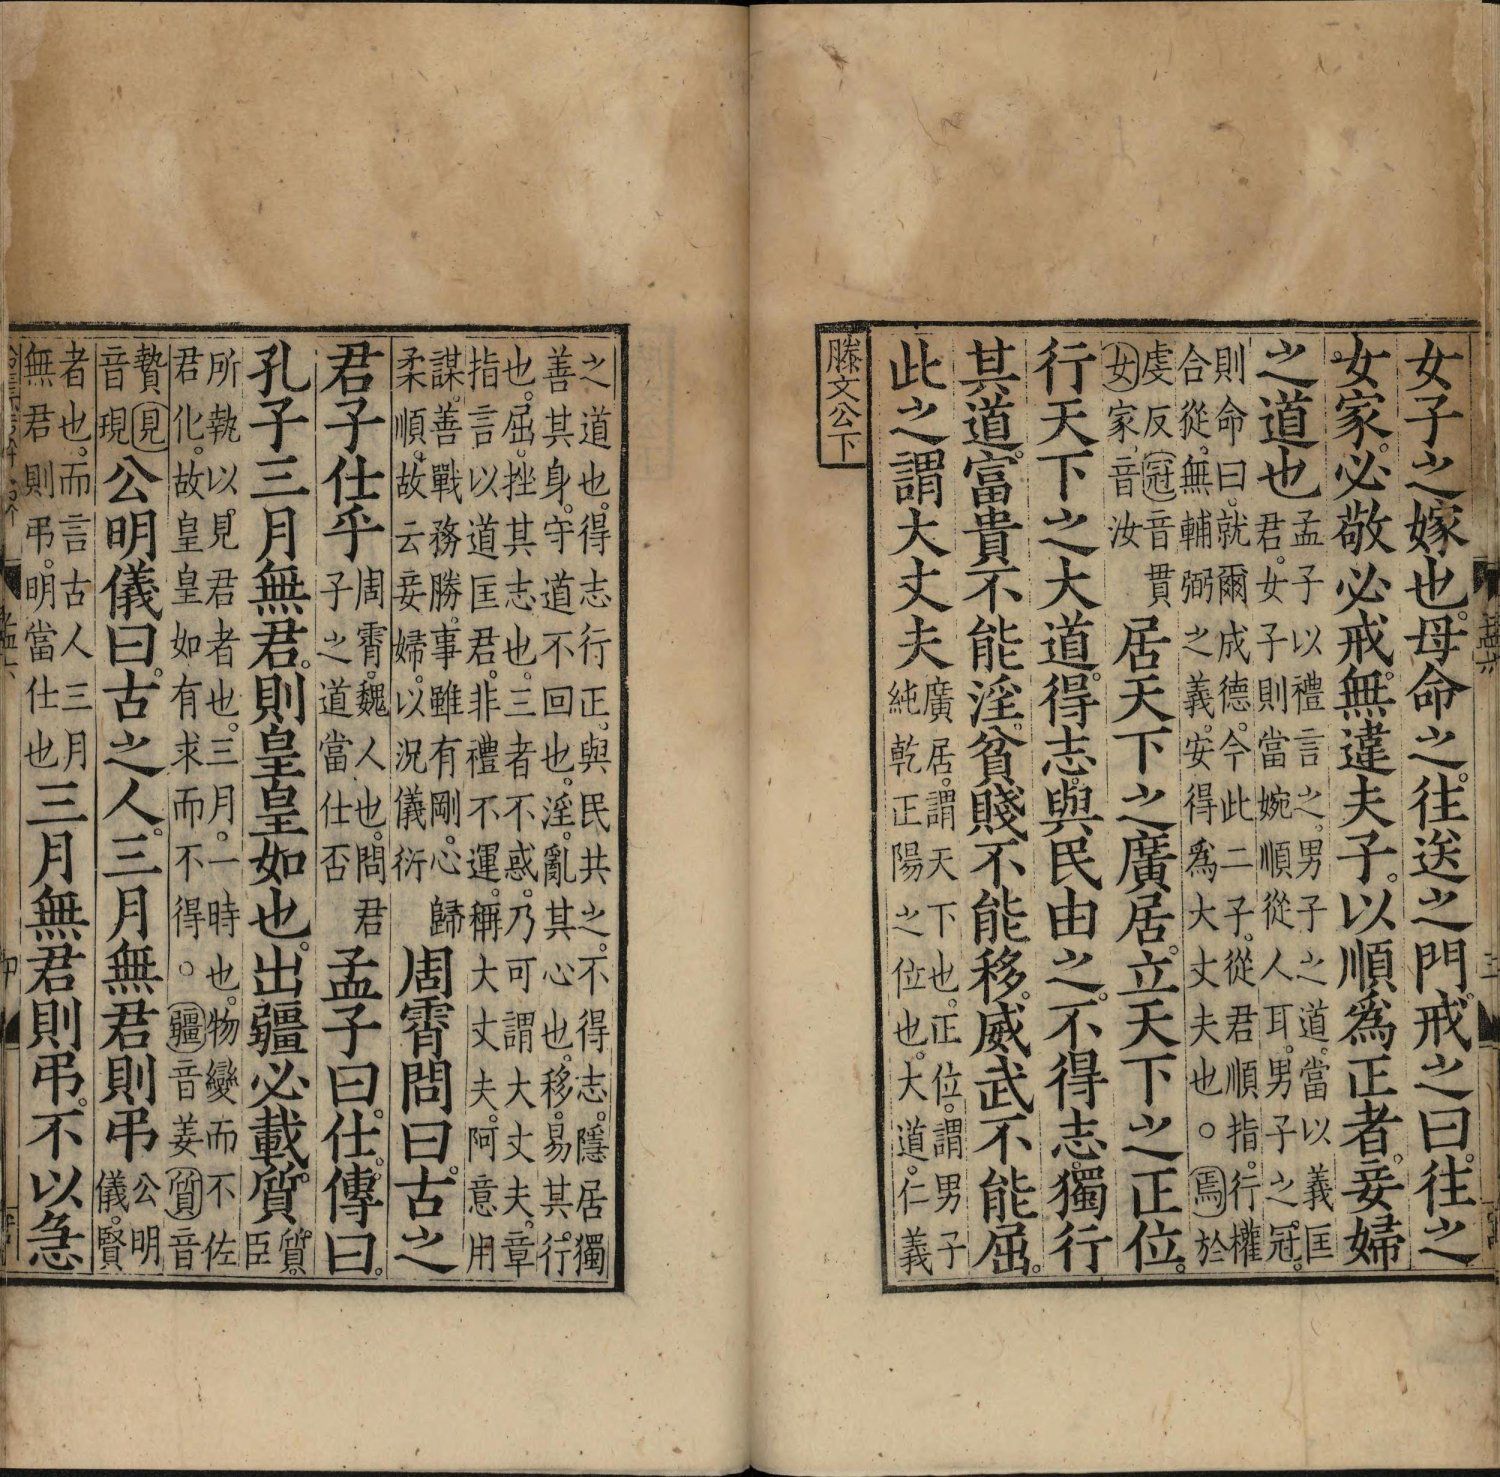 女子之嫁也。母命之。往送之門。戒之曰。往之
女家。必敬必戒。無違夫子。以順爲正者。妾婦
之道也
孟子以禮言之。男子之道。當以義匡
君。女子則當婉順從人耳。男子之冠。
則命曰。就爾成德。今此二子。從君順指。行權
合從。無輔弼之義。安得爲大丈夫也。○焉於
虔反冠音貫
女家音汝
居天下之廣居。立天下之正位。
行天下之大道。得志與民由之。不得志。獨行
其道。富貴不能淫。貧賤不能移。威武不能屈。
此之謂大丈夫
廣居。謂天下也。正位。謂男子
純乾正陽之位也。大道。仁義
滕文公下
之道也。得志行正。與民共之。不得志。隱居獨
善其身。守道不回也。淫。亂其心也。移。易其行
也。屈。挫其志也。三者不惑。乃可謂大丈夫。章
指言以道匡君。非禮不運。稱大丈夫。阿意用
謀。善戰務勝。事雖有剛。心歸
柔順。故云妾婦。以況儀衍
周霄問曰。古之
君子仕乎
周霄。魏人也。問君
子之道當仕否
孟子曰。仕。傳曰。
孔子三月無君。則皇皇如也。出疆必載質。
質。
臣
所執以見君者也。三月。一時也。物變而不佐
君化。故皇皇如有求而不得。○疆音姜質音
贄見
音現
公明儀曰。古之人。三月無君則弔
公明
儀。賢
者也。而言古人三月
無君則弔。明當仕也
三月無君則弔。不以急